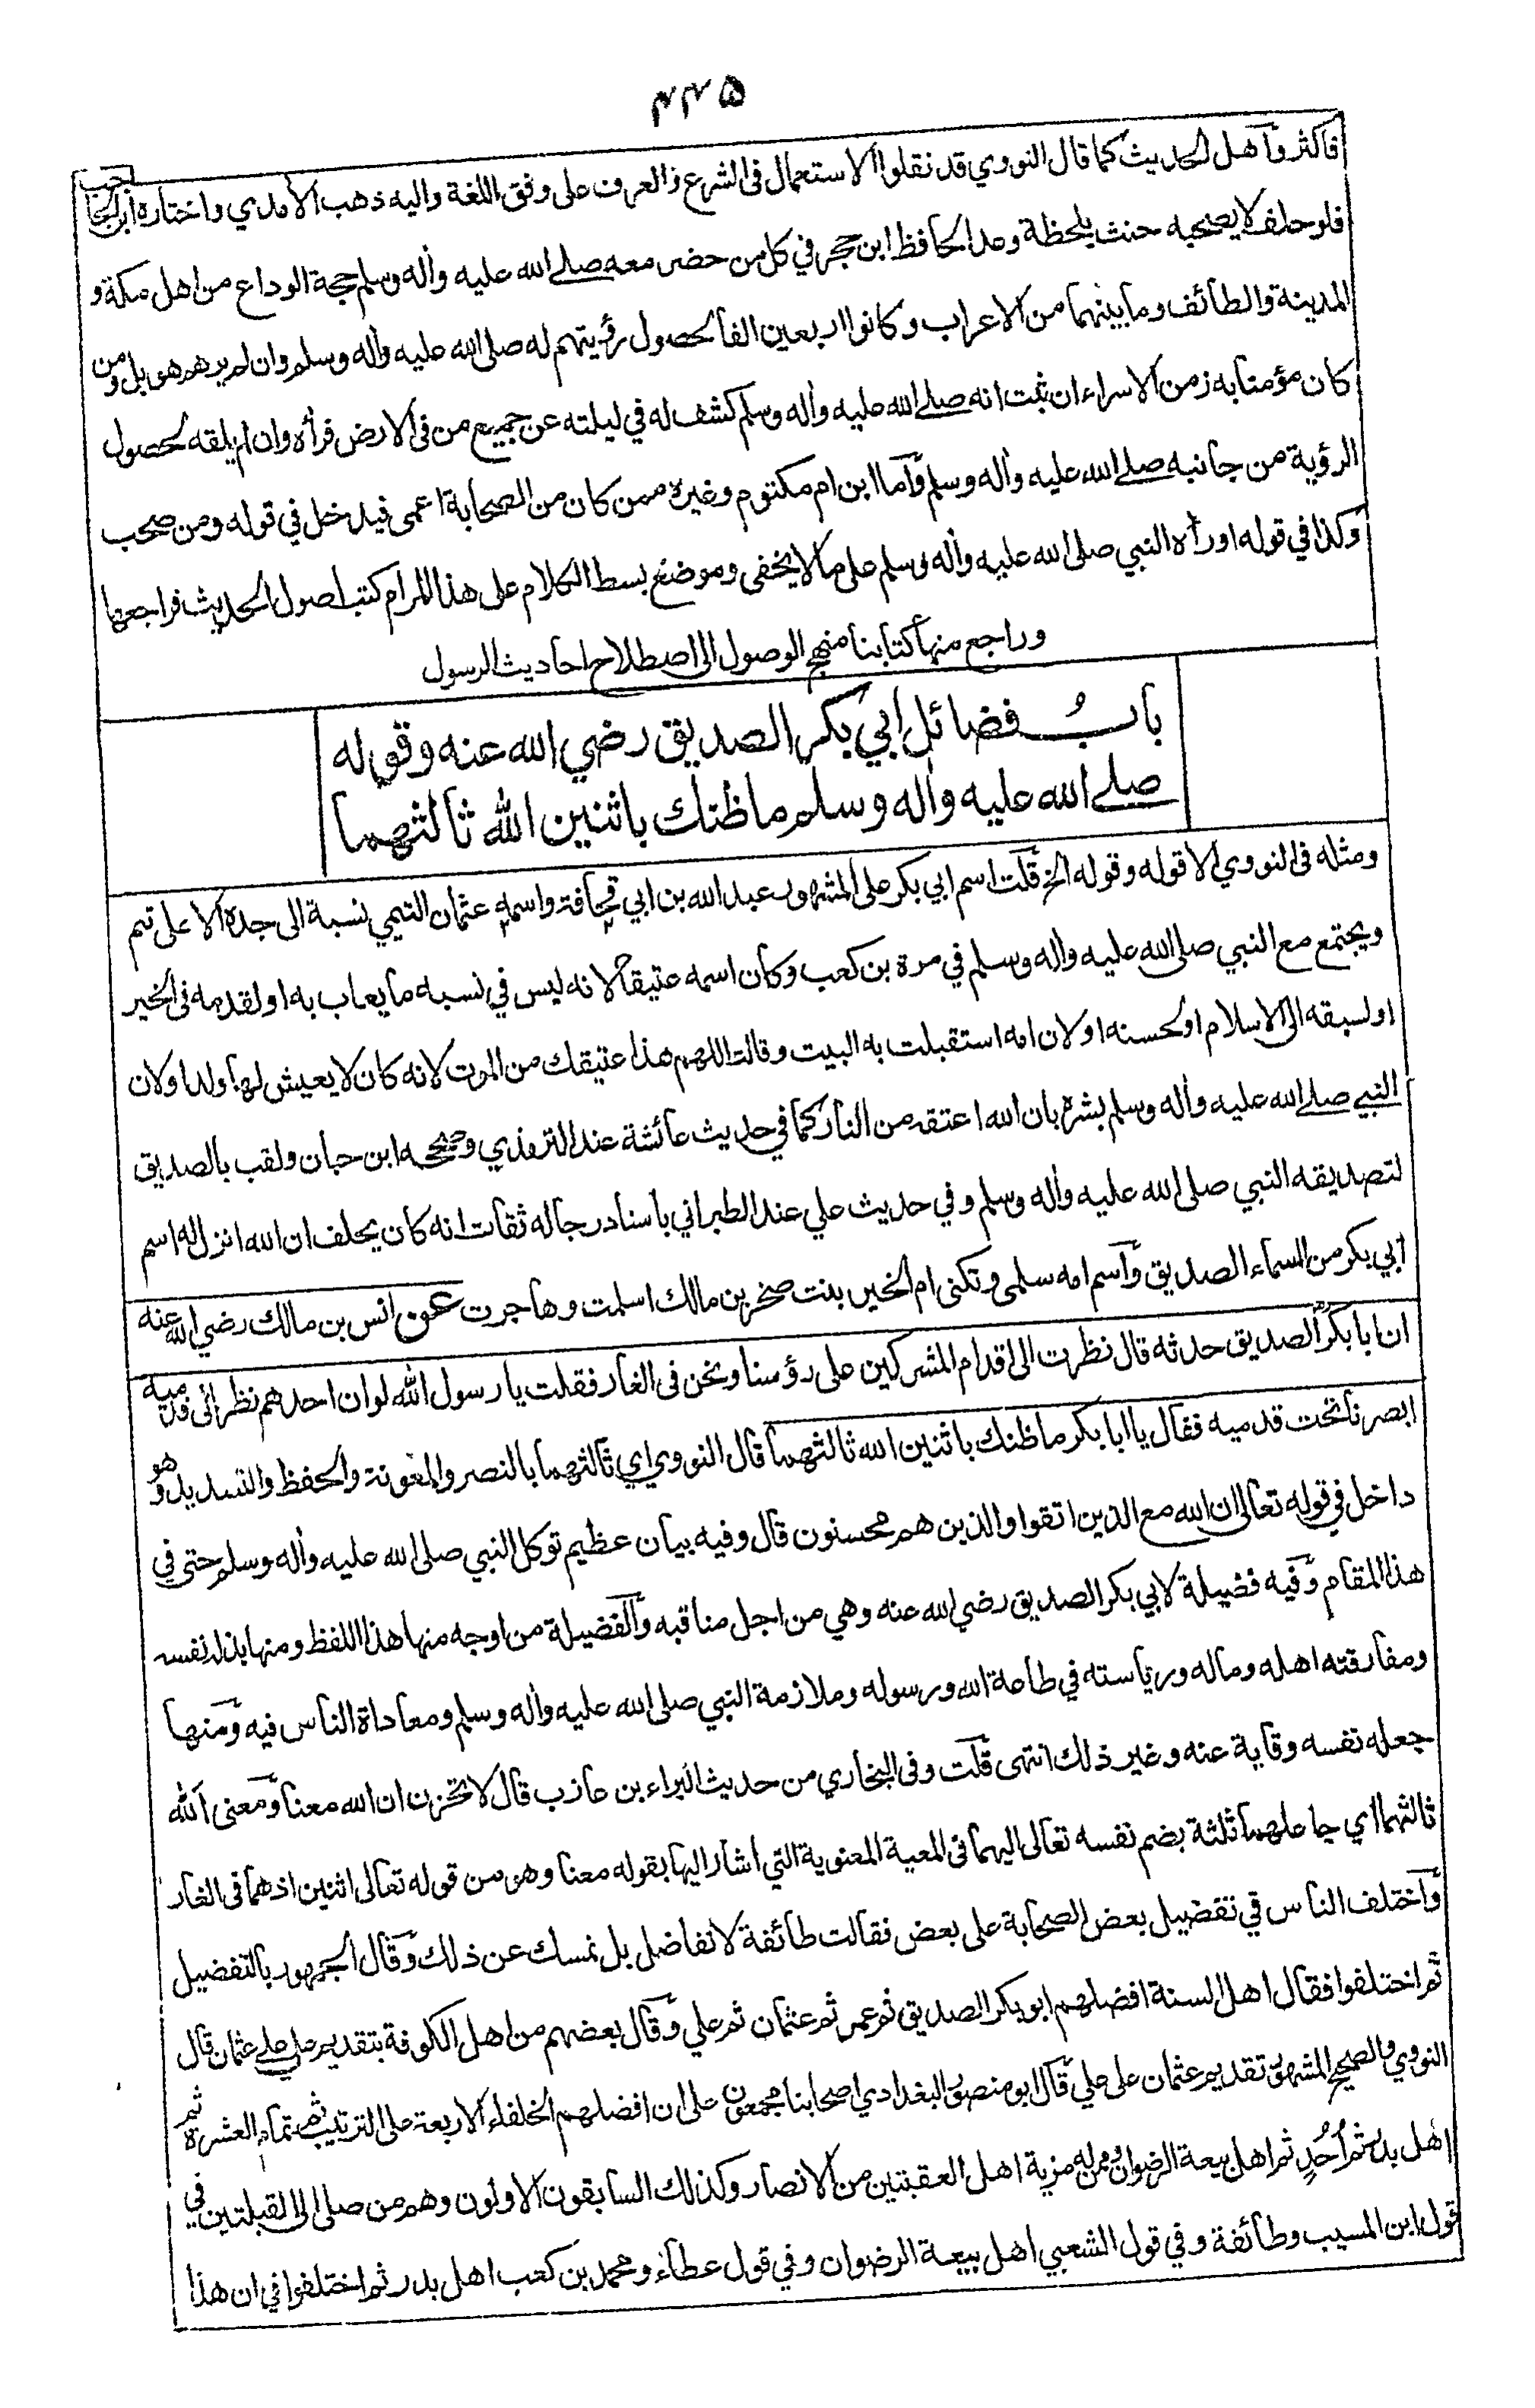 ٤٤٥
فاكثروآ هل الحديث كما قال النووي قد نقلوا الاستعمال فى الشرع والعرف على وفق اللغة واليه ذهب الأمدي واختاره ابن الحاجب
فلو حلف لا يصحبه حنث بلحظة وعد الحافظ ابن حجر في كل من حضر معه صلے الله عليه واٰله وسلم حجة الوداع من اهل مكة و
المدينة والطائف وما بينهما من الاعراب وكانوا اربعين الفا لحصول رؤيتهم له صلى الله عليه واٰله وسلم وان لم يرهم هو بل ومن
كان مؤمنا به زمن الاسراء ان ثبت انه صلے الله عليه واٰله وسلم كشف له في ليلته عن جميع من فى الارض فرأه وان لم يلقه لحصول
الرؤية من جانبه صلے الله عليه واٰله وسلم وآما ابن ام مكتوم وغيره ممن كان من الصحابة اعمى فيدخل في قوله ومن صحب
وكذا في قوله او رأه النبي صلى الله عليه واٰله وسلم على ما لا يخفى وموضع بسط الكلام على هذا المرام كتب اصول الحديث فراجعها
وراجع منها كتابنا منهج الوصول الى اصطلاح احاديث الرسول
بابُ فضائل ابي بكر الصديق رضي الله عنه وقوله
صلے الله عليه واٰله وسلم ما ظنك باثنين الله ثالثهما
ومثله فى النووي الا قوله وقوله الخ قلت اسم ابي بكر على المشهور عبد الله بن ابي قحافة واسمه عثمان التيمي نسبة الى جده الاعلى تيم
ويجتمع مع النبي صلى الله عليه واٰله وسلم في مرة بن كعب وكان اسمه عتيقا لانه ليس في نسبه ما يعاب به او لقدمه فى الخير
او لسبقه الى الاسلام او لحسنه او لان امه استقبلت به البيت وقالت اللهم هذا عتيقك من الموت لانه كان لا يعيش لها ولد او لان
النبي صلے الله عليه واٰله وسلم بشره بان الله اعتقه من النار كما في حديث عائشة عند الترمذي وصححه ابن حبان ولقب بالصديق
لتصديقه النبي صلى الله عليه واٰله وسلم وفي حديث علي عند الطبراني باسناد رجاله ثقات انه كان يحلف ان الله انزل له اسم
ابي بكر من السماء الصديق وآسم امه سلمى وتكنى ام الخير بنت صخر بن مالك اسلمت وهاجرت عن انس بن مالك رضي الله عنه
ان ابا بكر الصديق حدثه قال نظرت الى اقدام المشركين على رؤسنا ونحن فى الغار فقلت يا رسول الله لو ان احدهم نظر الى قدميه
ابصرنا تحت قدميه فقال يا ابا بكر ما ظنك باثنين الله ثالثهما قال النووي اي ثالثهما بالنصر والمعونة والحفظ والتسديد وهو
داخل في قوله تعالى ان الله مع الذين اتقوا والذين هم محسنون قال وفيه بيان عظيم توكل النبي صلى الله عليه واٰله وسلم حتى في
هذا المقام وفيه فضيلة لابي بكر الصديق رضي الله عنه وهي من اجل مناقبه وآلفضيلة من اوجه منها هذا اللفظ ومنها بذله نفسه
ومفارقته اهله وماله ورياسته في طاعة الله ورسوله وملازمة النبي صلى الله عليه واٰله وسلم ومعاداة الناس فيه ومنها
جعله نفسه وقاية عنه وغير ذلك انتهى قلت وفى البخاري من حديث البراء بن عازب قال لا تحزن ان الله معنا ومعنى الله
ثالثهما اي جاعلهما ثلثة بضم نفسه تعالى اليهما فى المعية المعنوية التي اشار اليها بقوله معنا وهو من قوله تعالى اثنين اذهما فى الغار
وآختلف الناس في تفضيل بعض الصحابة على بعض فقالت طائفة لا نفاضل بل نمسك عن ذلك وقال الجمهور بالتفضيل
ثم اختلفوا فقال اهل السنة افضلهم ابو بكر الصديق ثم عمر ثم عثمان ثم علي وقال بعضهم من اهل الكوفة بتقديم علي علے عثمان قال
النووي والصحيح المشهور تقديم عثمان على علي قال ابو منصور البغدادي اصحابنا مجمعون على ان افضلهم الخلفاء الاربعة على الترتيب ثم تمام العشرة ثم
اهل بدر ثم اُحُدٍ ثم اهل بيعة الرضوان وممن له مزية اهل العقبتين من الانصار وكذلك السابقون الاولون وهم من صلى الى القبلتين في
قول ابن المسيب وطائفة وفي قول الشعبي اهل بيعة الرضوان وفي قول عطاء ومحمد بن كعب اهل بدر ثم اختلفوا في ان هذا